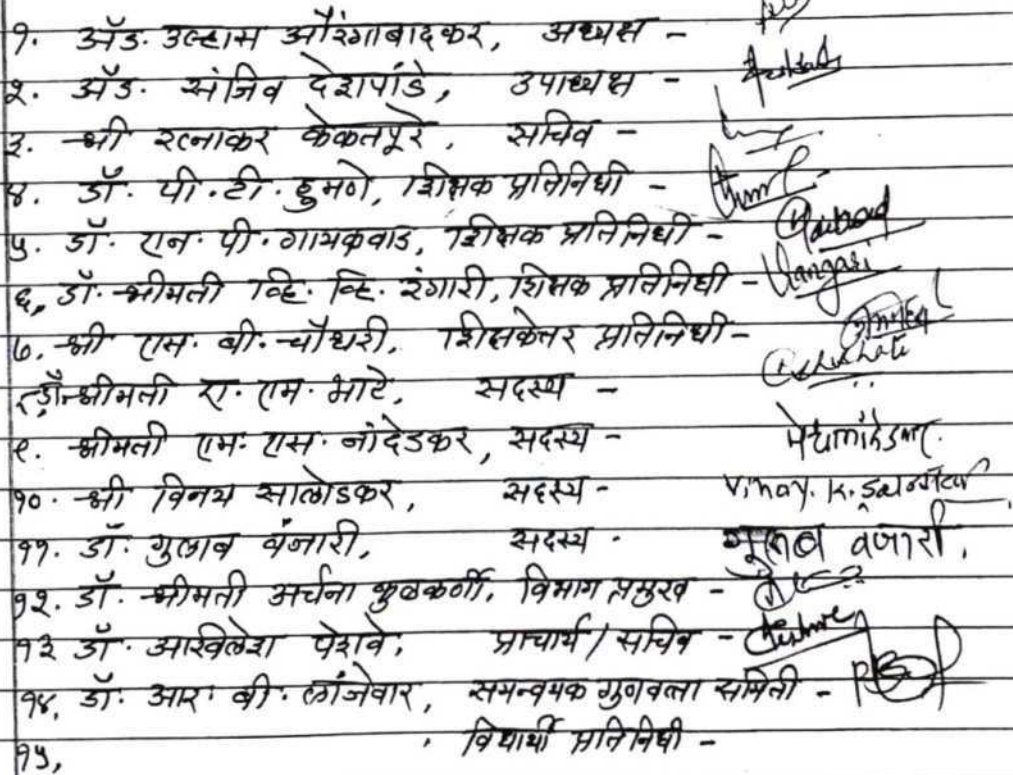 १. अ‍ॅड. उल्हास औरंगाबादकर, अध्यक्ष -
२. अ‍ॅड. संजिव देशपांडे, उपाध्यक्ष -
३. श्री रत्नाकर केकतपूरे, सचिव -
४. डॉ. पी. टी. हुमणे, शिक्षक प्रतिनिधी -
५. डॉ. एन. पी. गायकवाड, शिक्षक प्रतिनिधी -
६. डॉ. श्रीमती व्हि. व्हि. रंगारी, शिक्षक प्रतिनिधी - Vangari
७. श्री एस. बी. चौधरी, शिक्षकेतर प्रतिनिधी -
८. डॉ. श्रीमती ए. एम. भाटे, सदस्य -
९. श्रीमती एम. एस. नांदेडकर, सदस्य -
१०. श्री विनय सालोडकर, सदस्य - Vinay. K. Salodkar
११. डॉ. गुलाब वंजारी, सदस्य - गुलाब वंजारी.
१२. डॉ. श्रीमती अर्चना कुळकर्णी, विभाग प्रमुख -
१३ डॉ. अखिलेश पेशवे, प्राचार्य / सचिव -
१४. डॉ. आर. बी. लांजेवार, समन्वयक गुणवत्ता समिती -
१५, विद्यार्थी प्रतिनिधी -